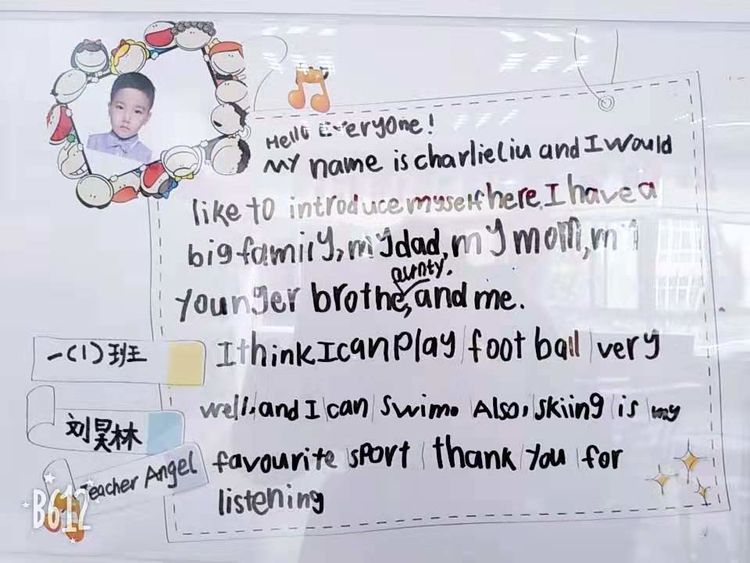 Hello Everyone!
My name is charlieliu and I would
like to introduce myself here. I have a
big family, my dad, my mom, my
aunty,
younger brothe, and me.
I think I can play foot ball very
well, and I can swim. Also, skiing is my
favourite sport thank you for
listening
一(1)班
刘昊林
Teacher Angel
B612